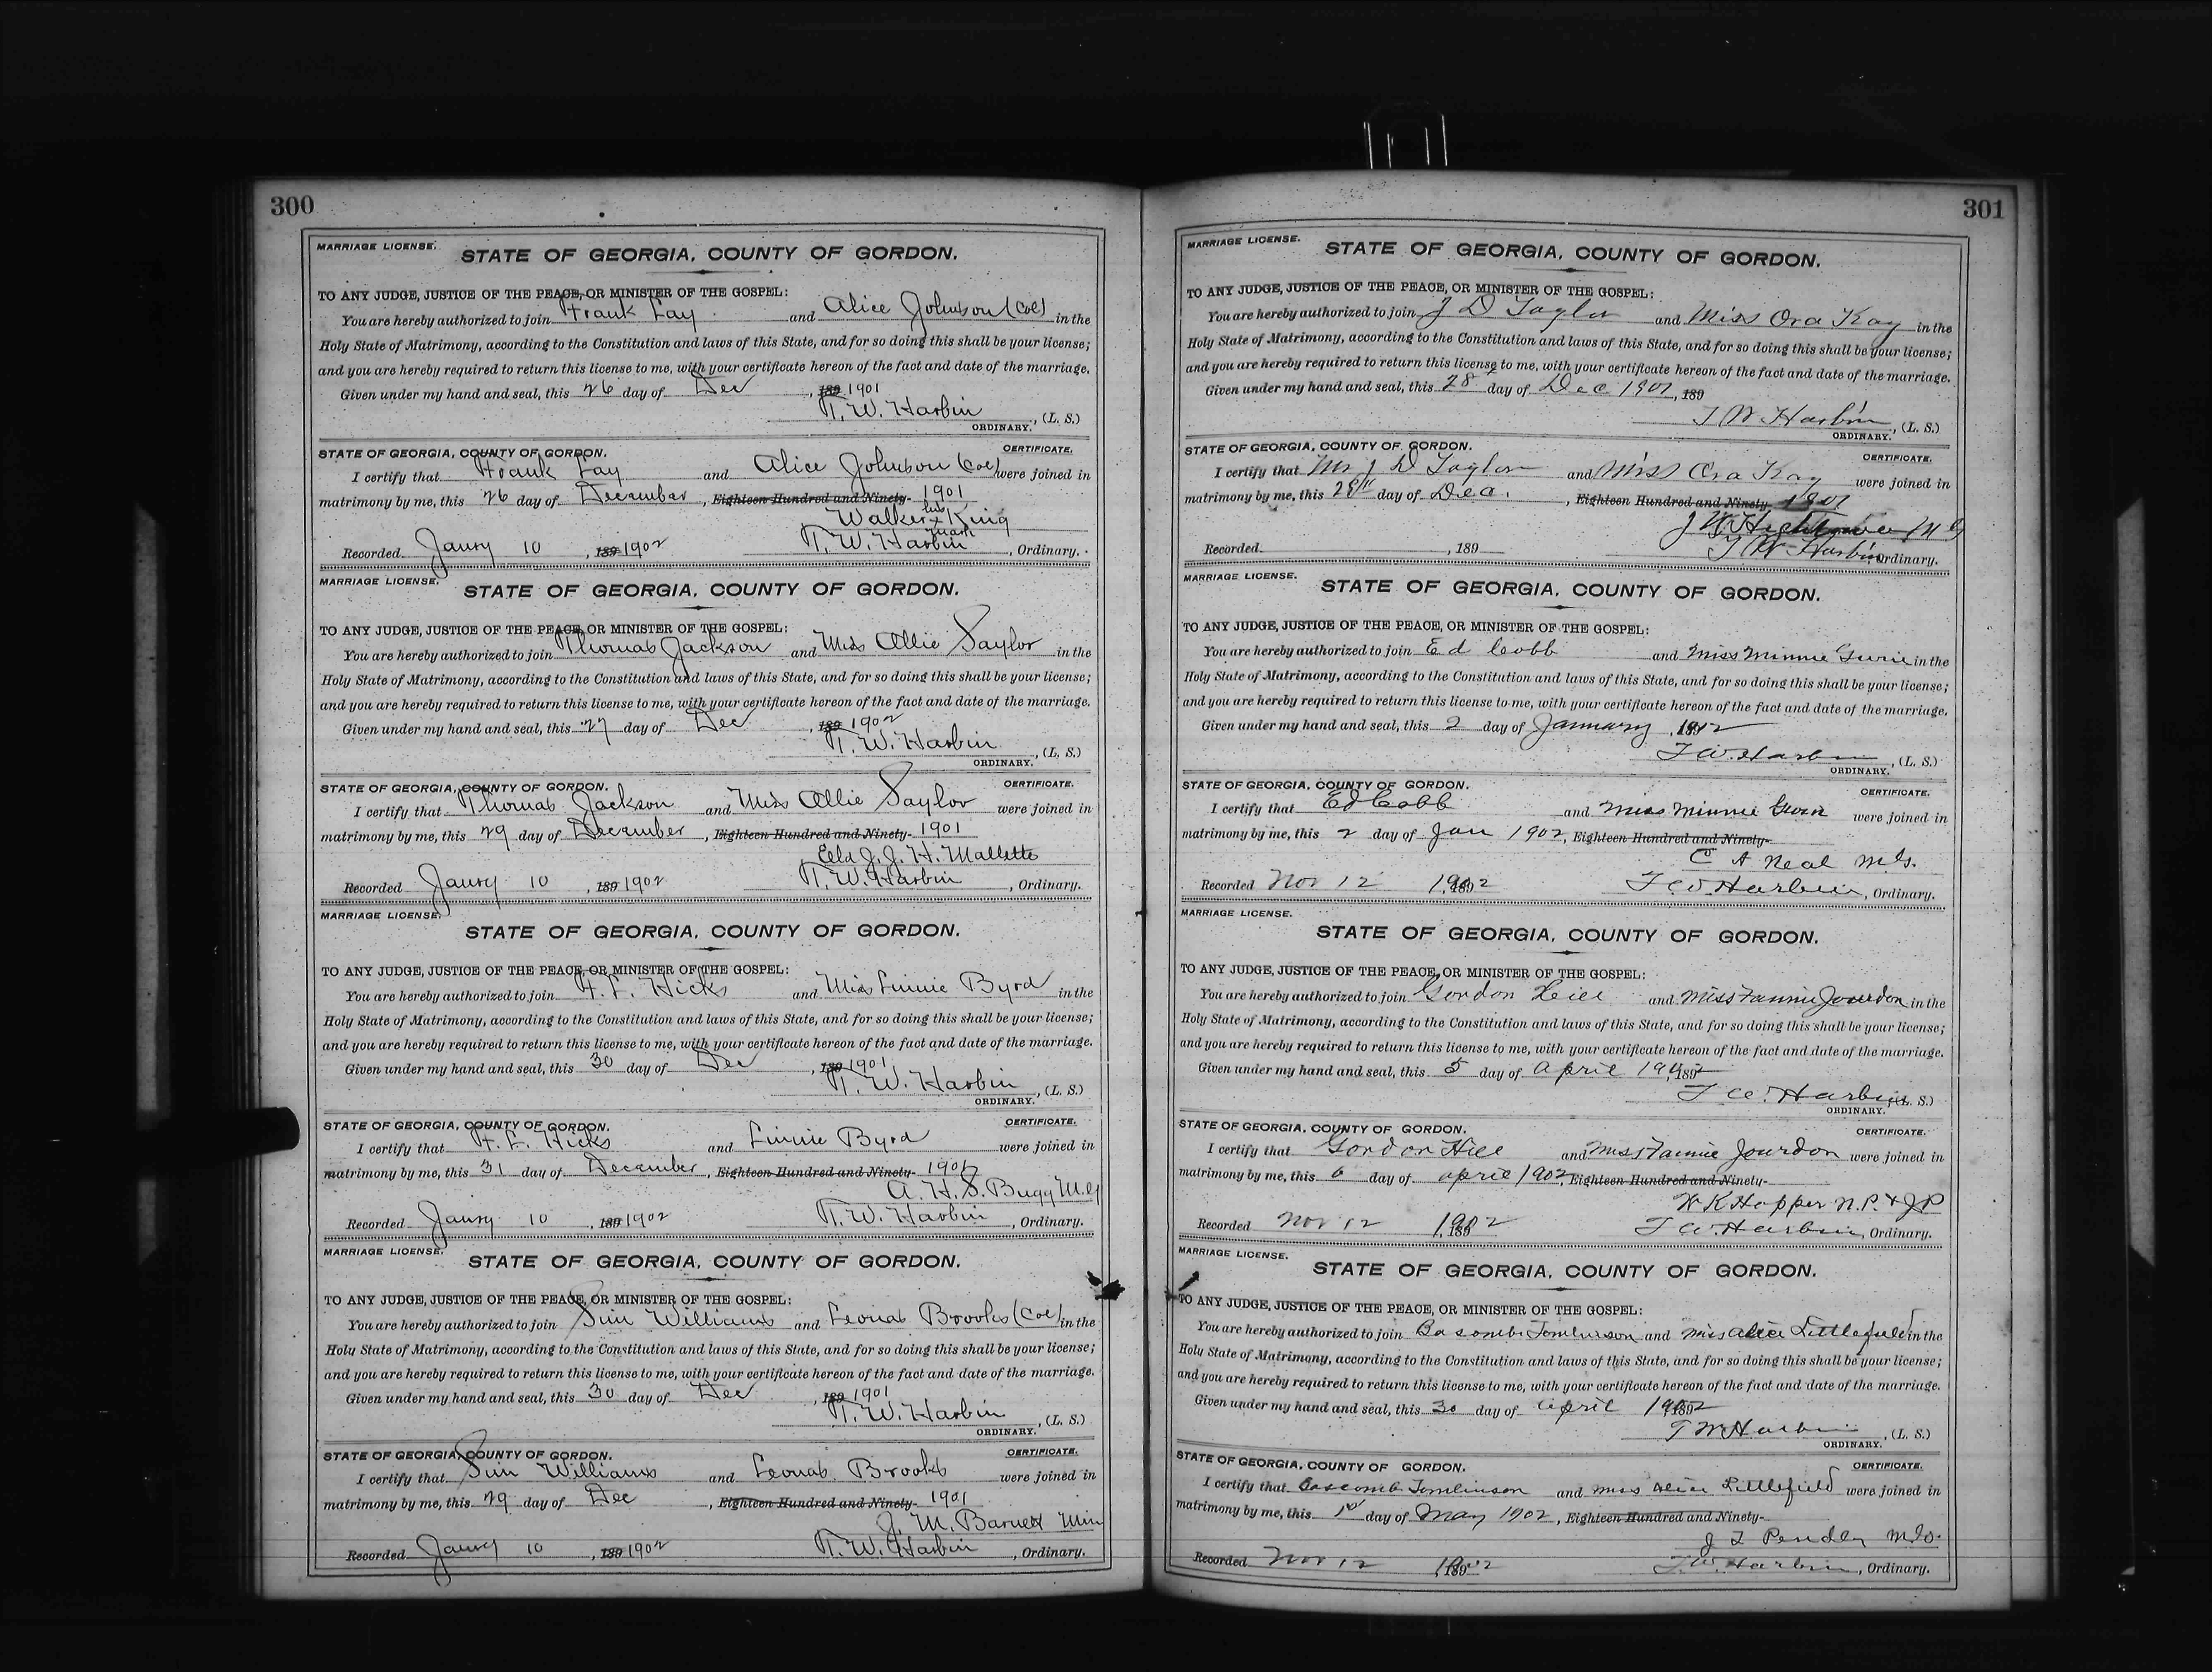 300
MARRIAGE LICENSE.
STATE OF GEORGIA, COUNTY OF GORDON.
TO ANY JUDGE, JUSTICE OF THE PEACE, OR MINISTER OF THE GOSPEL:
You are hereby authorized to join Frank Lay and Alice Johnson (Col) in the
Holy State of Matrimony, according to the Constitution and laws of this State, and for so doing this shall be your license;
and you are hereby required to return this license to me, with your certificate hereon of the fact and date of the marriage.
Given under my hand and seal, this 26 day of Dec, 189 1901
T. W. Harbin, (L. S.)
ORDINARY.
STATE OF GEORGIA, COUNTY OF GORDON. CERTIFICATE.
I certify that Frank Lay and Alice Johnson (Col) were joined in
matrimony by me, this 26 day of December, Eighteen Hundred and Ninety- 1901
Walker his x mark King
Recorded Janry 10, 189 1902 T. W. Harbin, Ordinary.
MARRIAGE LICENSE.
STATE OF GEORGIA, COUNTY OF GORDON.
TO ANY JUDGE, JUSTICE OF THE PEACE, OR MINISTER OF THE GOSPEL:
You are hereby authorized to join Thomas Jackson and Miss Ollie Saylor in the
Holy State of Matrimony, according to the Constitution and laws of this State, and for so doing this shall be your license;
and you are hereby required to return this license to me, with your certificate hereon of the fact and date of the marriage.
Given under my hand and seal, this 27 day of Dec, 189 1902
T. W. Harbin, (L. S.)
ORDINARY.
STATE OF GEORGIA, COUNTY OF GORDON. CERTIFICATE.
I certify that Thomas Jackson and Miss Ollie Saylor were joined in
matrimony by me, this 29 day of December, Eighteen Hundred and Ninety- 1901
Eld J. J. H. Mallette
Recorded Janry 10, 189 1902 T. W. Harbin, Ordinary.
MARRIAGE LICENSE.
STATE OF GEORGIA, COUNTY OF GORDON.
TO ANY JUDGE, JUSTICE OF THE PEACE, OR MINISTER OF THE GOSPEL:
You are hereby authorized to join H. L. Hicks and Miss Linnie Byrd in the
Holy State of Matrimony, according to the Constitution and laws of this State, and for so doing this shall be your license;
and you are hereby required to return this license to me, with your certificate hereon of the fact and date of the marriage.
Given under my hand and seal, this 30 day of Dec, 189 1901
T. W. Harbin, (L. S.)
ORDINARY.
STATE OF GEORGIA, COUNTY OF GORDON. CERTIFICATE.
I certify that H. L. Hicks and Linnie Byrd were joined in
matrimony by me, this 31 day of December, Eighteen Hundred and Ninety- 1901
A. H. S. Bugg M.G
Recorded Janry 10, 189 1902 T. W. Harbin, Ordinary.
MARRIAGE LICENSE.
STATE OF GEORGIA, COUNTY OF GORDON.
TO ANY JUDGE, JUSTICE OF THE PEACE, OR MINISTER OF THE GOSPEL:
You are hereby authorized to join Sim Williams and Leonas Brooks (Col) in the
Holy State of Matrimony, according to the Constitution and laws of this State, and for so doing this shall be your license;
and you are hereby required to return this license to me, with your certificate hereon of the fact and date of the marriage.
Given under my hand and seal, this 30 day of Dec, 189 1901
T. W. Harbin, (L. S.)
ORDINARY.
STATE OF GEORGIA, COUNTY OF GORDON. CERTIFICATE.
I certify that Sim Williams and Leonas Brooks were joined in
matrimony by me, this 29 day of Dec, Eighteen Hundred and Ninety- 1901
J. M. Barnett Min
Recorded Janry 10, 189 1902 T. W. Harbin, Ordinary.
301
MARRIAGE LICENSE.
STATE OF GEORGIA, COUNTY OF GORDON.
TO ANY JUDGE, JUSTICE OF THE PEACE, OR MINISTER OF THE GOSPEL:
You are hereby authorized to join J D Taylor and Miss Ora Kay in the
Holy State of Matrimony, according to the Constitution and laws of this State, and for so doing this shall be your license;
and you are hereby required to return this license to me, with your certificate hereon of the fact and date of the marriage.
Given under my hand and seal, this 28 day of Dec 1901, 189
T W Harbin, (L. S.)
ORDINARY.
STATE OF GEORGIA, COUNTY OF GORDON. CERTIFICATE.
I certify that Mr J D Taylor and Miss Ora Kay were joined in
matrimony by me, this 29" day of Dec., Eighteen Hundred and Ninety- 1901
J W Hightower M G
Recorded, 189 T W Harbin, Ordinary.
MARRIAGE LICENSE.
STATE OF GEORGIA, COUNTY OF GORDON.
TO ANY JUDGE, JUSTICE OF THE PEACE, OR MINISTER OF THE GOSPEL:
You are hereby authorized to join Ed Cobb and Miss Minnie in the
Holy State of Matrimony, according to the Constitution and laws of this State, and for so doing this shall be your license;
and you are hereby required to return this license to me, with your certificate hereon of the fact and date of the marriage.
Given under my hand and seal, this 2 day of January, 1902
T W. Harbin, (L. S.)
ORDINARY.
STATE OF GEORGIA, COUNTY OF GORDON. CERTIFICATE.
I certify that Ed Cobb and Miss Minnie were joined in
matrimony by me, this 2 day of Jan 1902, Eighteen Hundred and Ninety-
C A Neal M.G.
Recorded Nov 12 1902 T W Harbin, Ordinary.
MARRIAGE LICENSE.
STATE OF GEORGIA, COUNTY OF GORDON.
TO ANY JUDGE, JUSTICE OF THE PEACE, OR MINISTER OF THE GOSPEL:
You are hereby authorized to join Gordon Hill and Miss Fannie Jourdon in the
Holy State of Matrimony, according to the Constitution and laws of this State, and for so doing this shall be your license;
and you are hereby required to return this license to me, with your certificate hereon of the fact and date of the marriage.
Given under my hand and seal, this 5 day of April 1902
T W. Harbin (L. S.)
ORDINARY.
STATE OF GEORGIA, COUNTY OF GORDON. CERTIFICATE.
I certify that Gordon Hill and Miss Fannie Jourdon were joined in
matrimony by me, this 6 day of april 1902, Eighteen Hundred and Ninety-
W K Hopper N.P. & J P
Recorded Nov 12 1902 T W. Harbin, Ordinary.
MARRIAGE LICENSE.
STATE OF GEORGIA, COUNTY OF GORDON.
TO ANY JUDGE, JUSTICE OF THE PEACE, OR MINISTER OF THE GOSPEL:
You are hereby authorized to join Bascomb Tomlinson and Miss Alice Littlefield in the
Holy State of Matrimony, according to the Constitution and laws of this State, and for so doing this shall be your license;
and you are hereby required to return this license to me, with your certificate hereon of the fact and date of the marriage.
Given under my hand and seal, this 30 day of april 1902
T W Harbin, (L. S.)
ORDINARY.
STATE OF GEORGIA, COUNTY OF GORDON. CERTIFICATE.
I certify that Bascomb Tomlinson and Miss Alice Littlefield were joined in
matrimony by me, this 1st day of May 1902, Eighteen Hundred and Ninety-
J T Pendley M.G.
Recorded Nov 12 1902 T. W. Harbin, Ordinary.